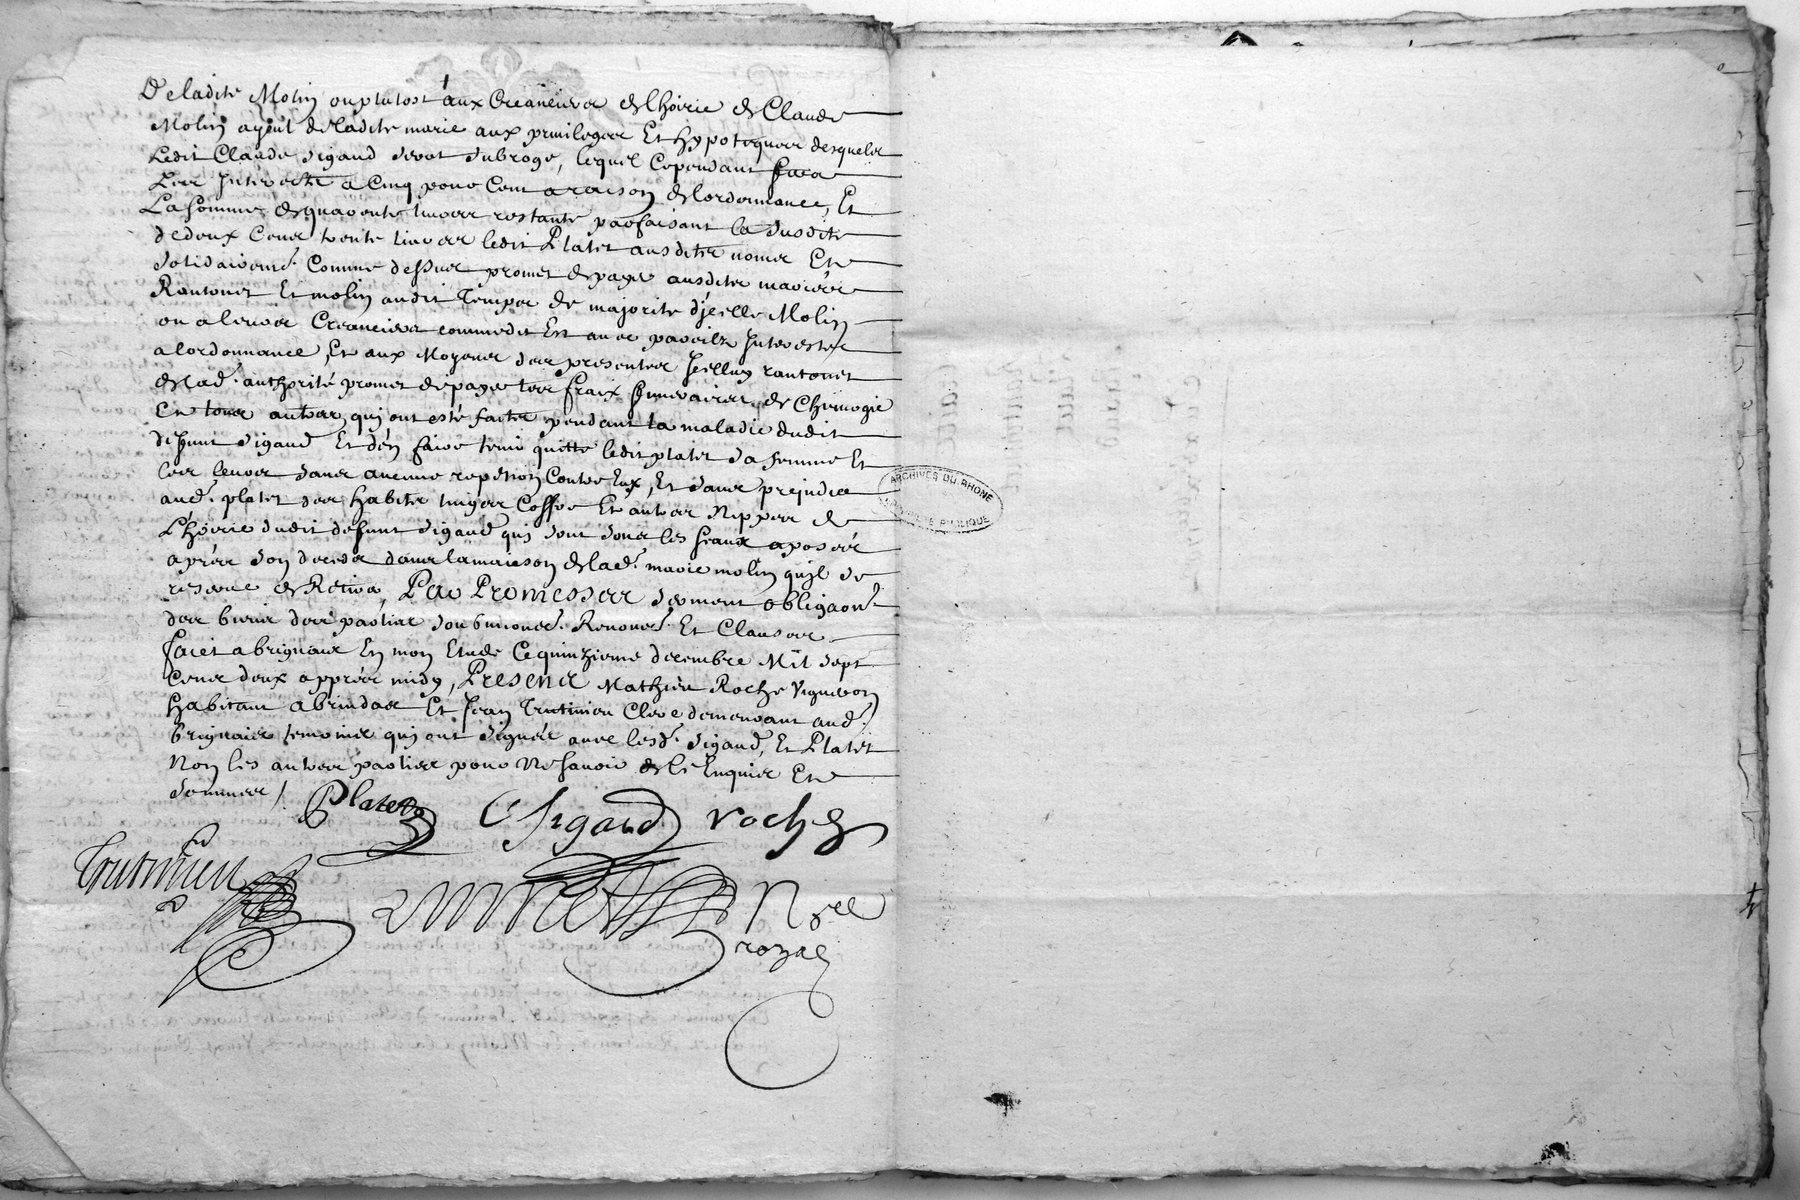 De ladite Molin ou plutost aux Creanciers de lhoirie de Claude
Molin ayeul de ladite marie aux privileges Et hypoteques desquels
Ledit Claude sigaud serat subroge, lequel Cependant fera
Les Interests a Cinq pour Cent a raison de lordonnance, Et
La somme de quarante livres restante parfaisant la susdite
de deux Cens trente livres ledit Platet ausdites noms Et
solidairemt. Comme dessus promet de payer ausdites mariés
Rantonet Et molin audit Temps de majorite d'jcelle Molin
ou a leurs Creanciers comme dit Est avec pareils Interests
a lordonnance, Et aux Moyens des presentes Jcelluy rantonet
de lad. authorité promet de payer les fraix funeraires de Chirurgie
Et tous autres qui ont esté faites pendant la maladie dudit
defunt sigaud Et d'en faire tenir quitte ledit platet sa femme Et
les leurs sans aucune repetion Contre Eux, Et sans prejudice
aud. platet des habits linges Coffre Et autres Nippes de
L'hoirie dudit defunt sigaud qui sont sous les sceaux aposés
apres son deceds dans la maison de lad. marie molin qu'il se
reserve de Retirer, Par Promesses serment obligaont.
des biens des parties soubmions. Renons. Et Clauses
faict a brignais En mon Etude Ce quinzieme decembre Mil sept
Cens deux appres midy, Presens Mathieu Roche Vigneron
habitant a brindas Et Jean Trutinieu Clerc demeurant aud.
brignais temoins qui ont signés avec lesd. sigaud, Et Platet
Non les autres parties pour Ne savoir de le Enquis Et
sommes /.
Platet C Sigaud roche
Trutinieu Nre
royal
ARCHIVES DU RHONE